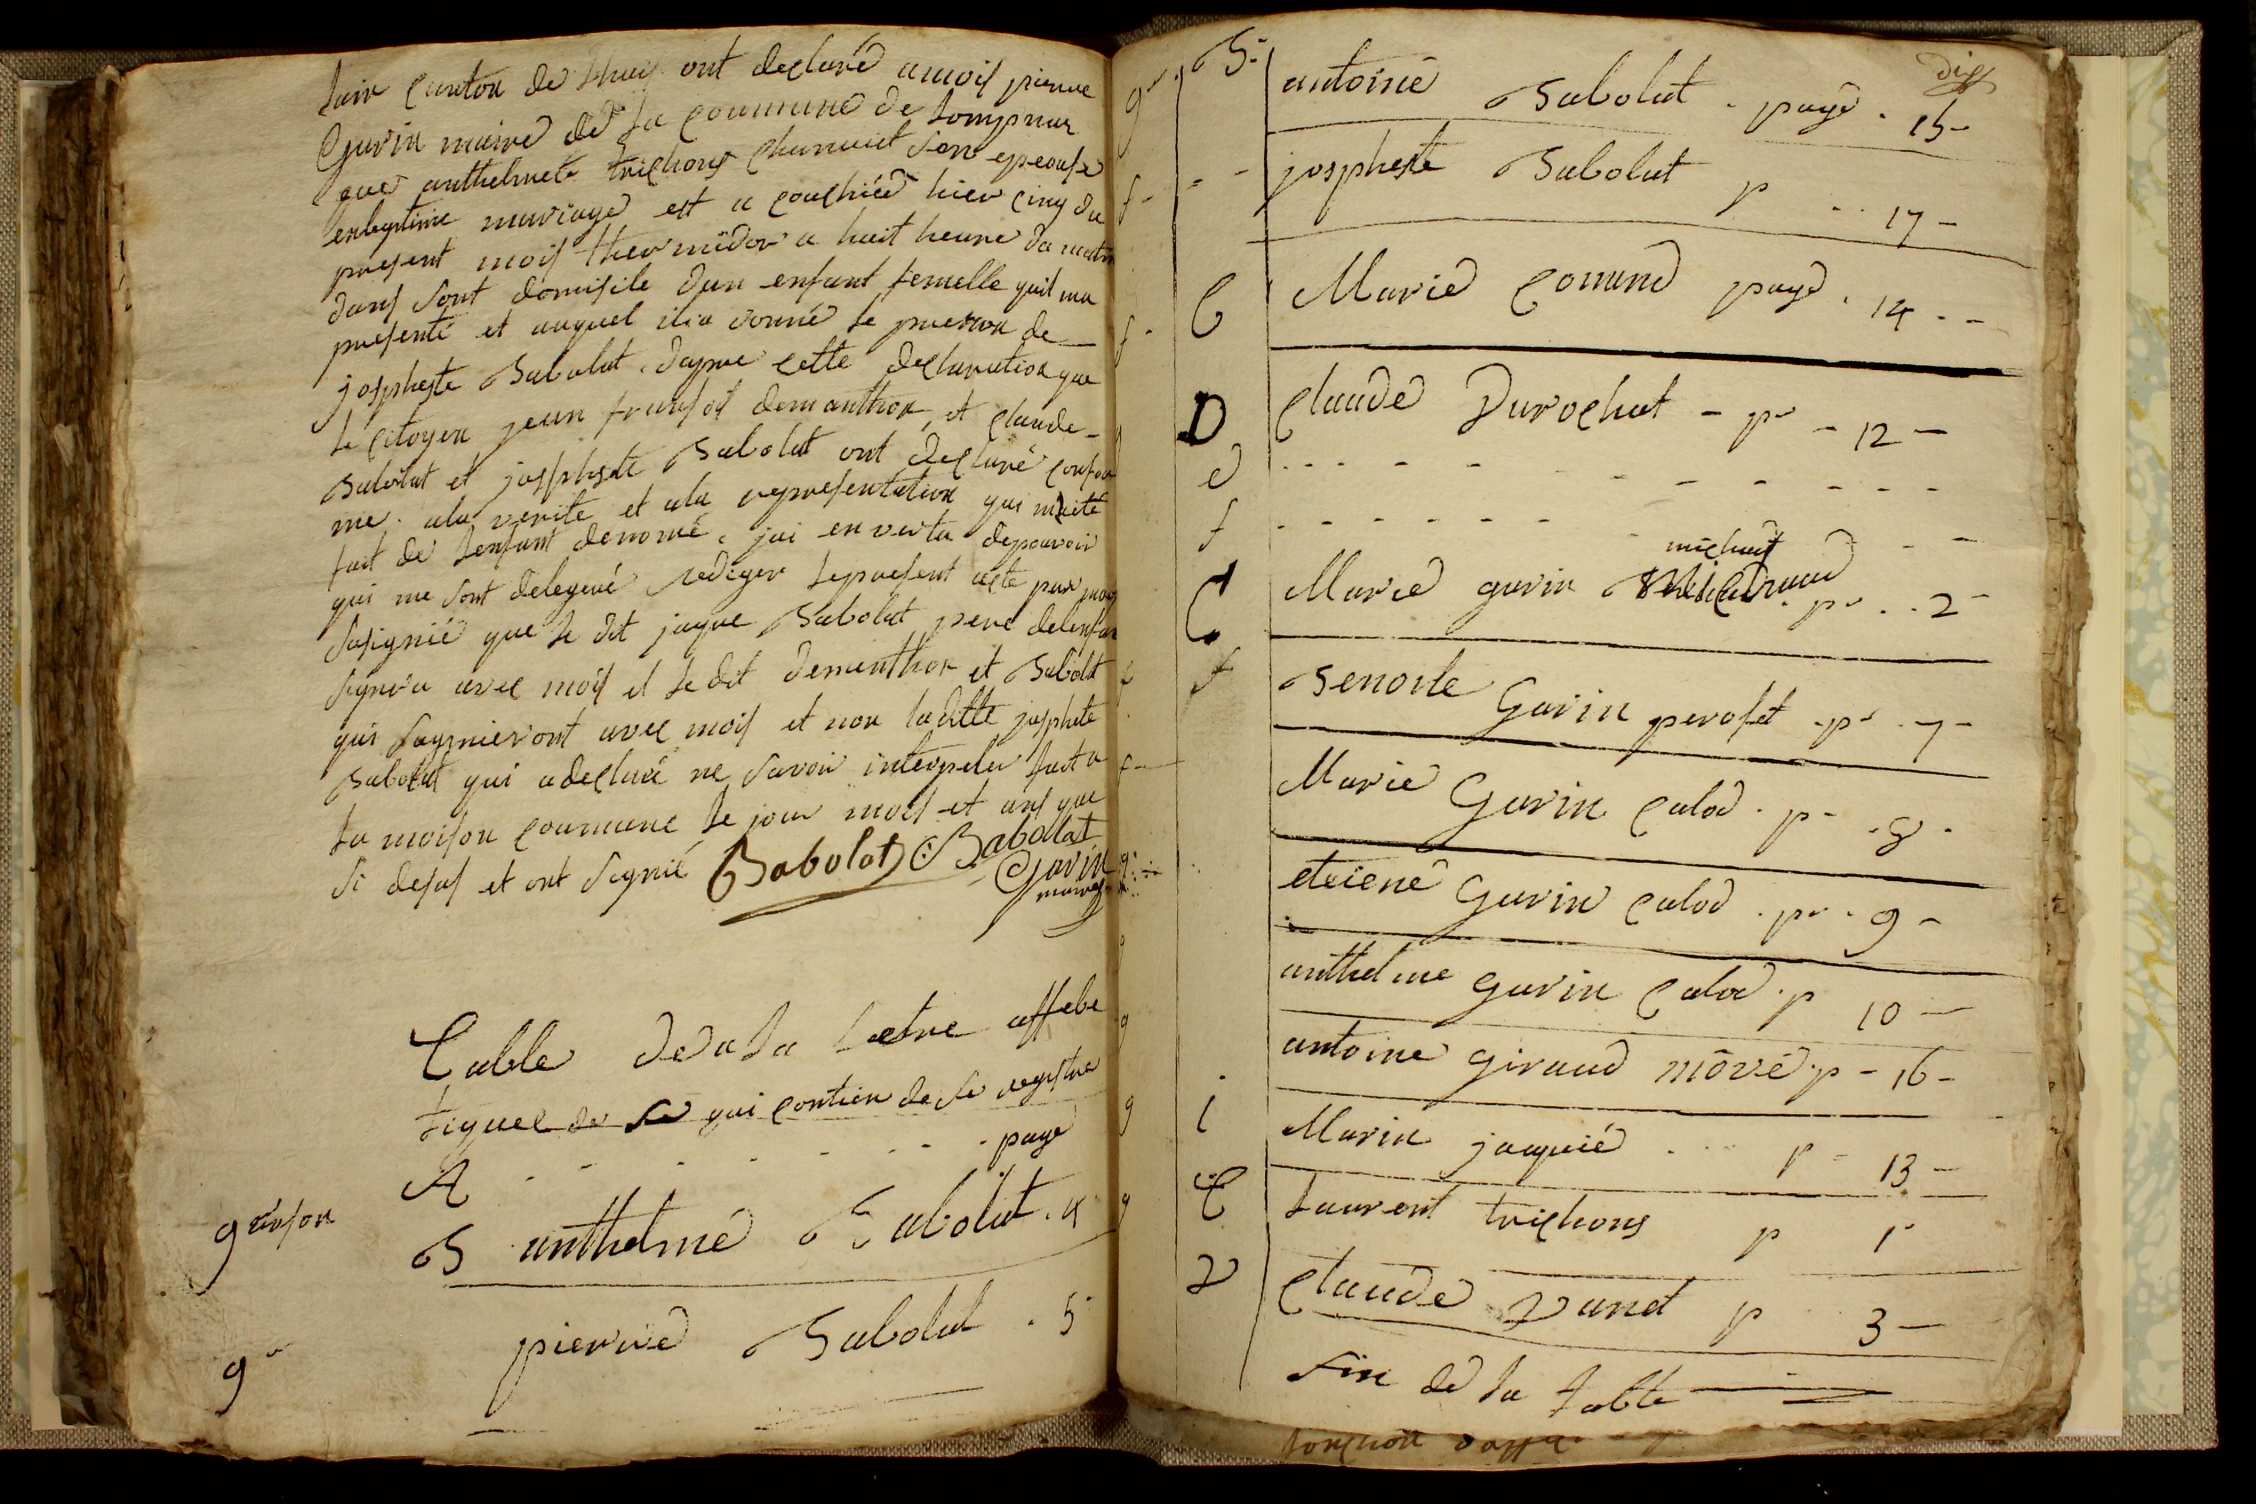 lain Canton de lhuis ont declaré a mois pierre
Gurin maire de la Commune de lompnas
que anthelmete trichons Charvait son epeouse
enlegitime mariage est a couchiée hier cinq du
present mois thermidor a huit heure du matin
dans sont domisile dun enfant femelle quil ma
presenté et auquel il a donné le prenon de
jospheste Babolat . dapre cette declaration que
le Citoyen jean fransois demanthon, et Claude
Babolat et josphete Babolat ont declaré confor
me . ala verite et ala representation qui maité
fait de lenfant denomé . jai en vertu depouvoir
qui me sont delegeué rediger lepresent acte par moy
susignié que le dit jaque Babolat pere delenfan
signera avec mois et le dit dementhon et Babolat
qui signieront avec mois et non laditte josphete
Babolat qui adeclaré ne savoir interpeler fait a
la moison Commune le jour mois et ans que
si desus et ont signié Babolat C : Babollat
Gavin
maire
Table de a la lettre alfabe
tiquee de se qui contien de se registre
A - - - - - - - page
garson B anthelmé Babolat . 4
g pierre Babolat . 5
dix
g B antoine Babolat . page . 15 -
f - josphete Babolat p - - 17 -
f C Marie Comund page . 14 - -
D Claude Durochat - p - 12 -
e - - - - - - - - - -
f - - - - - - - -
michaud
C Marie gurin p . . 2 -
f f Benoite Gurin peroset - p - 7 -
f - Marie Gurin Calod . p - - 8 -
g etiene Gurin Calod . p . 9 -
g anthelme Gurin Calod . p 10 -
g antoine giraud mové . p - 16 -
g i Marin jaquié . . . p - 13 -
g T laurent trichons p 1
V Claude Vanet p 3 -
fin de la table